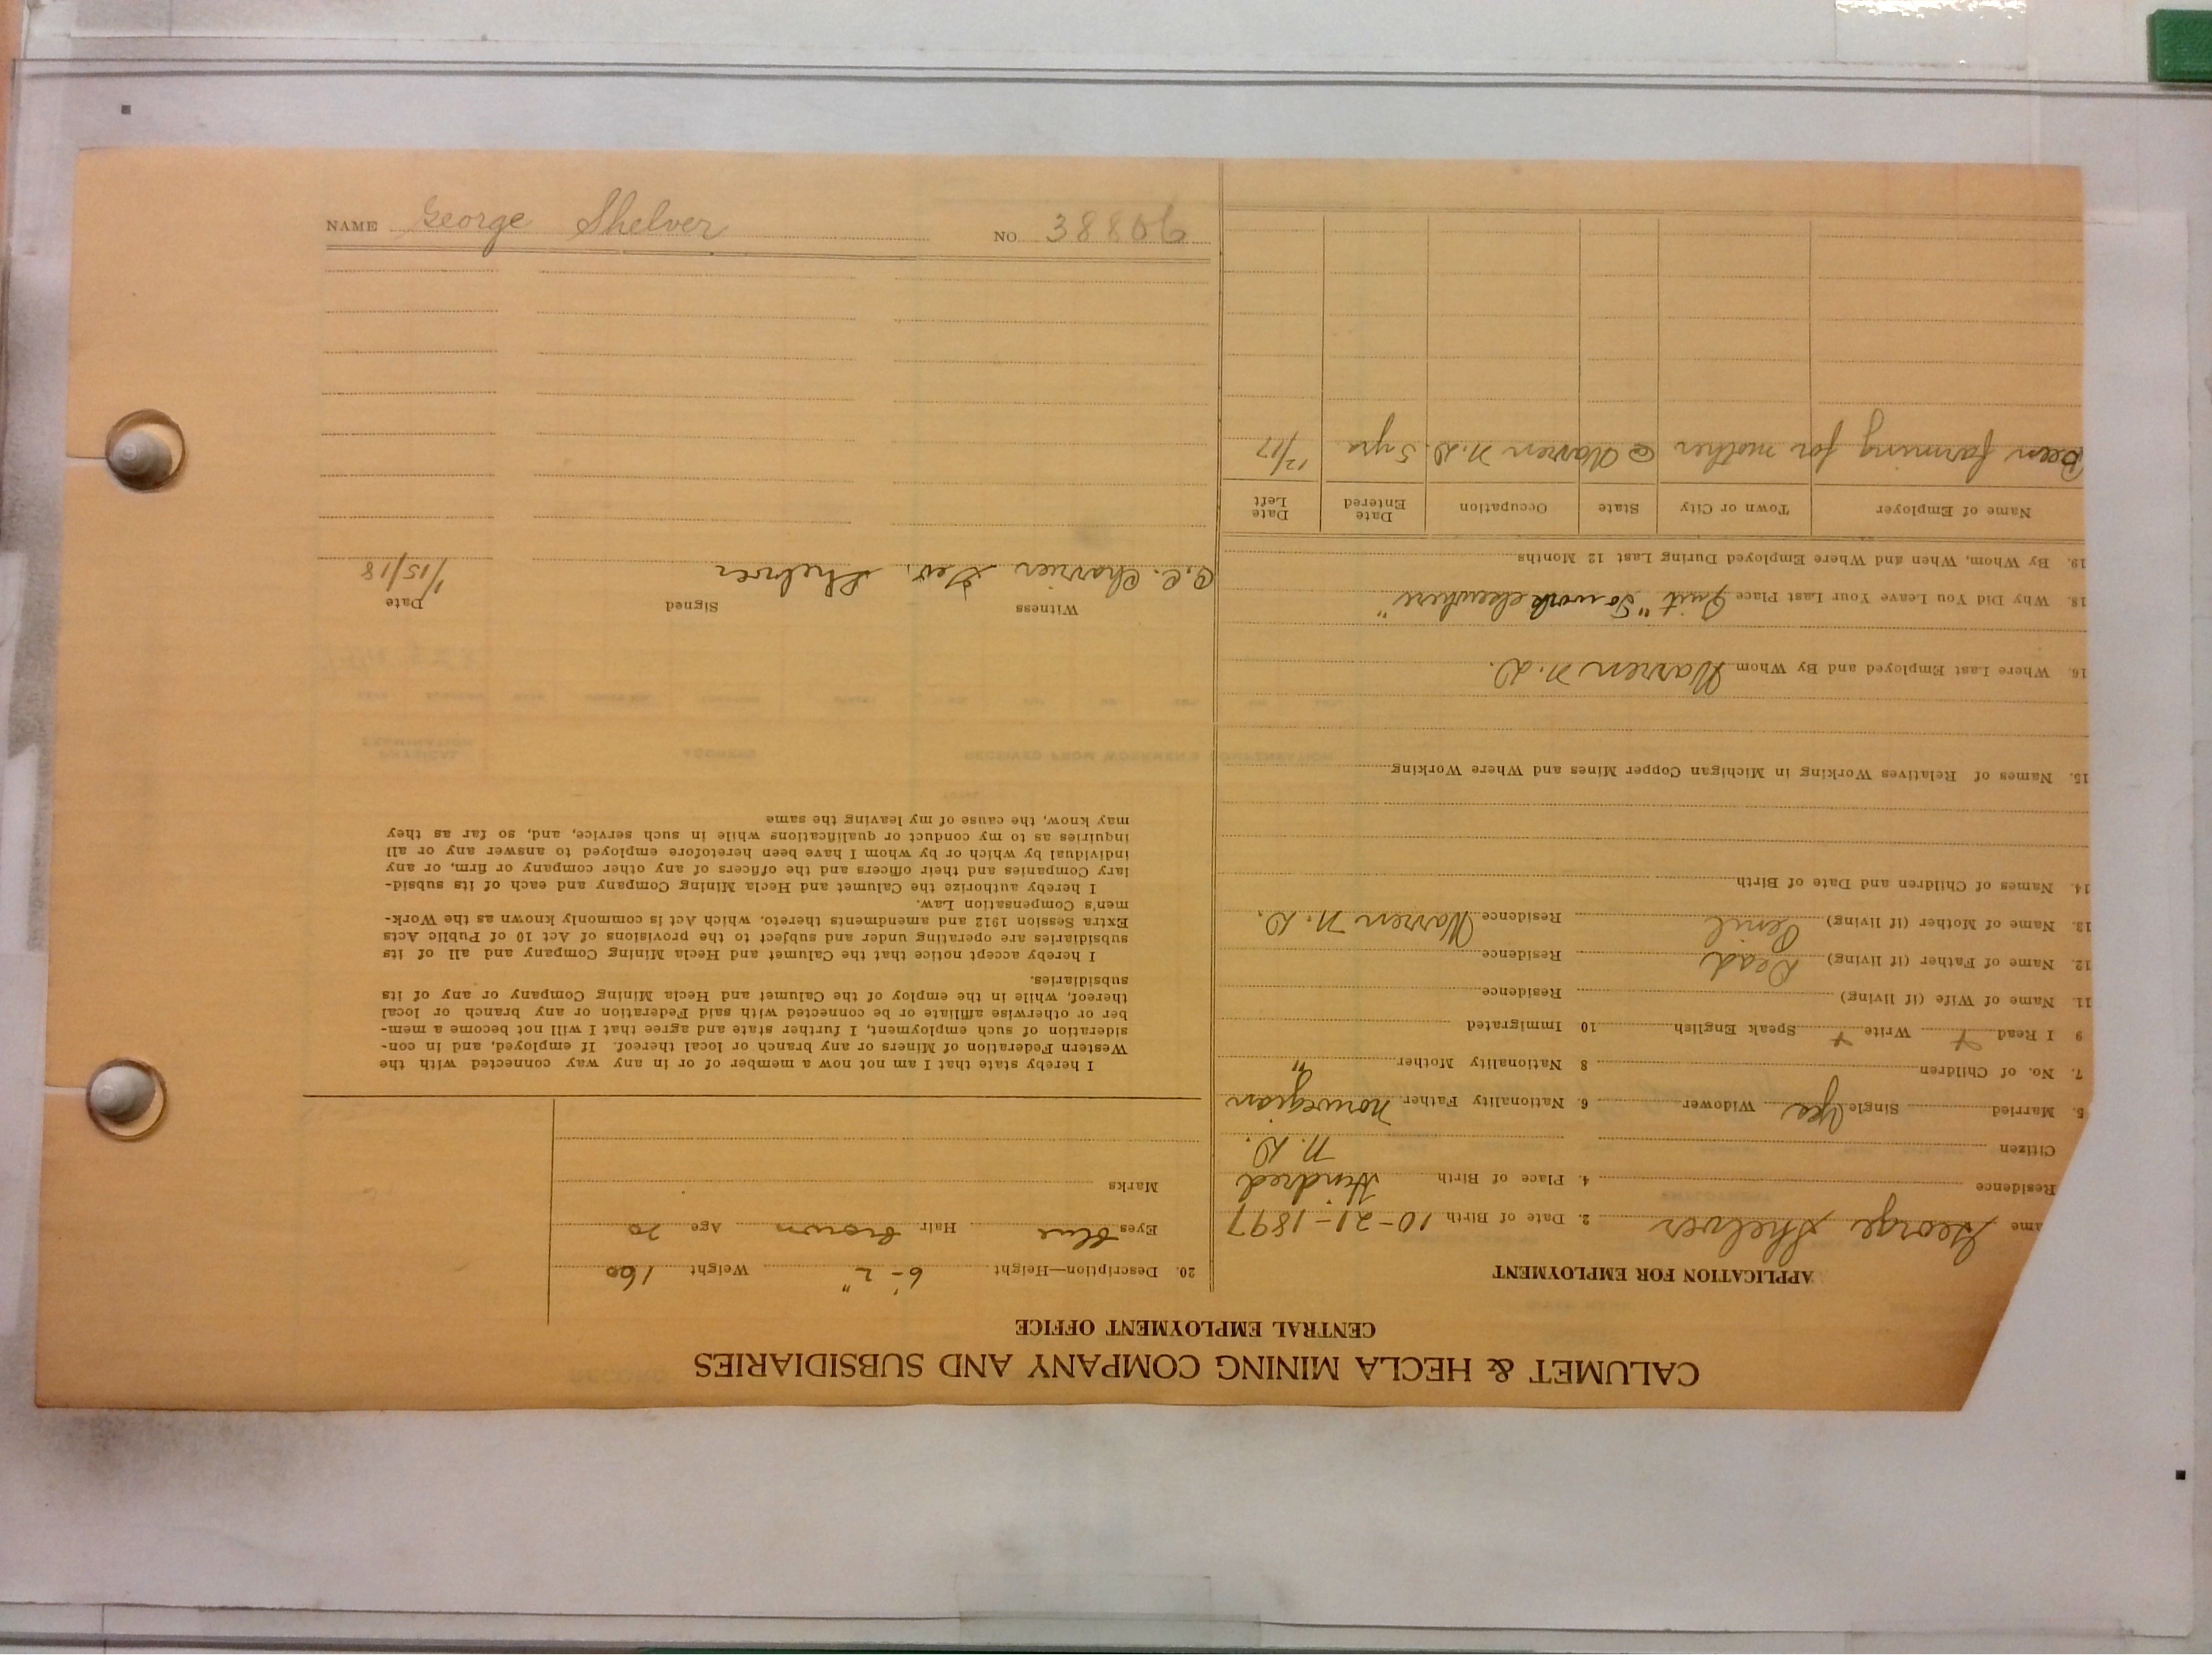 CALUMET & HECLA MINING COMPANY AND SUBSIDIARIES
CENTRAL EMPLOYMENT OFFICE
APPLICATION FOR EMPLOYMENT
ame George Shelver 2. Date of Birth 10-21-1897
Residence 4. Place of Birth Hindred
Citizen N.D.
5. Married Single Yes Widower 6. Nationality Father Norwegian
7. No. of Children 8 Nationality Mother "
9 I Read + Write + Speak English 10 Immigrated
11. Name of Wife (if living) Residence
12. Name of Father (if living) Dead Residence
13. Name of Mother (if living) Residence Warren N.D.
14. Names of Children and Date of Birth
15. Names of Relatives Working in Michigan Copper Mines and Where Working
16. Where Last Employed and By Whom Warren N.D.
18. Why Did You Leave Your Last Place Quit "To work elsewhere"
19. By Whom, When and Where Employed During Last 12 Months
Name of Employer Town or City State Occupation Date Entered Date Left
Been farming for mother @ Warren N.D. 5 yrs. 12/17
20. Description—Height 6'-2" Weight 160
Eyes Blue Hair Brown Age 20
Marks
I hereby state that I am not now a member of or in any way connected with the
Western Federation of Miners or any branch or local thereof. If employed, and in con-
sideration of such employment, I further state and agree that I will not become a mem-
ber or otherwise affiliate or be connected with said Federation or any branch or local
thereof, while in the employ of the Calumet and Hecla Mining Company or any of its
subsidiaries.
I hereby accept notice that the Calumet and Hecla Mining Company and all of its
subsidiaries are operating under and subject to the provisions of Act 10 of Public Acts
Extra Session 1912 and amendments thereto, which Act is commonly known as the Work-
men's Compensation Law.
I hereby authorize the Calumet and Hecla Mining Company and each of its subsid-
iary Companies and their officers and the officers of any other company or firm, or any
individual by which or by whom I have been heretofore employed to answer any or all
inquiries as to my conduct or qualifications while in such service, and, so far as they
may know, the cause of my leaving the same
Witness Signed Date
C.C. Charrier Geo. Shelver 1/15/18
NAME George Shelver NO. 38806